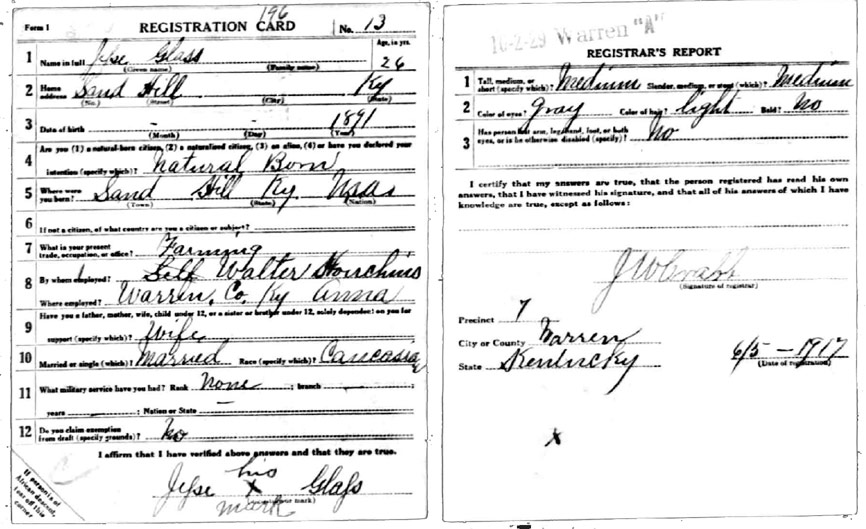 196
Form 1 REGISTRATION CARD No. 13
1 Name in full Jesse Glass Age, in yrs. 26
(Given name) (Family name)
2 Home address Sand Hill Ky
(No.) (Street) (City) (State)
3 Date of birth - - 1891
(Month) (Day) (Year)
Are you (1) a natural-born citizen, (2) a naturalized citizen, (3) an alien, (4) or have you declared your
4 intention (specify which)? Natural Born
5 Where were you born? Sand Hill Ky Usa
(Town) (State) (Nation)
6 If not a citizen, of what country are you a citizen or subject?
7 What is your present trade, occupation, or office? Farming
8 By whom employed? Self Walter
Where employed? Warren, Co, Ky Anna
Have you a father, mother, wife, child under 12, or a sister or brother under 12, solely dependent on you for
9 support (specify which)? Wife
10 Married or single (which)? Married Race (specify which)? Caucasian
11 What military service have you had? Rank None ; branch
years ; Nation or State —
12 Do you claim exemption from draft (specify grounds)? No
I affirm that I have verified above answers and that they are true.
his
Jesse X Glass
(Signature or mark)
mark
If person is of African descent, tear off this corner
10-2-29 Warren "A"
REGISTRAR'S REPORT
1 Tall, medium, or short (specify which)? Medium Slender, medium, or stout (which)? Medium
2 Color of eyes? Gray Color of hair? light Bald? No
3 Has person lost arm, leg, hand, foot, or both eyes, or is he otherwise disabled (specify)? No
I certify that my answers are true, that the person registered has read his own
answers, that I have witnessed his signature, and that all of his answers of which I have
knowledge are true, except as follows:
(Signature of registrar)
Precinct 7
City or County Warren
State Kentucky 6/5 - 1917
(Date of registration)
X